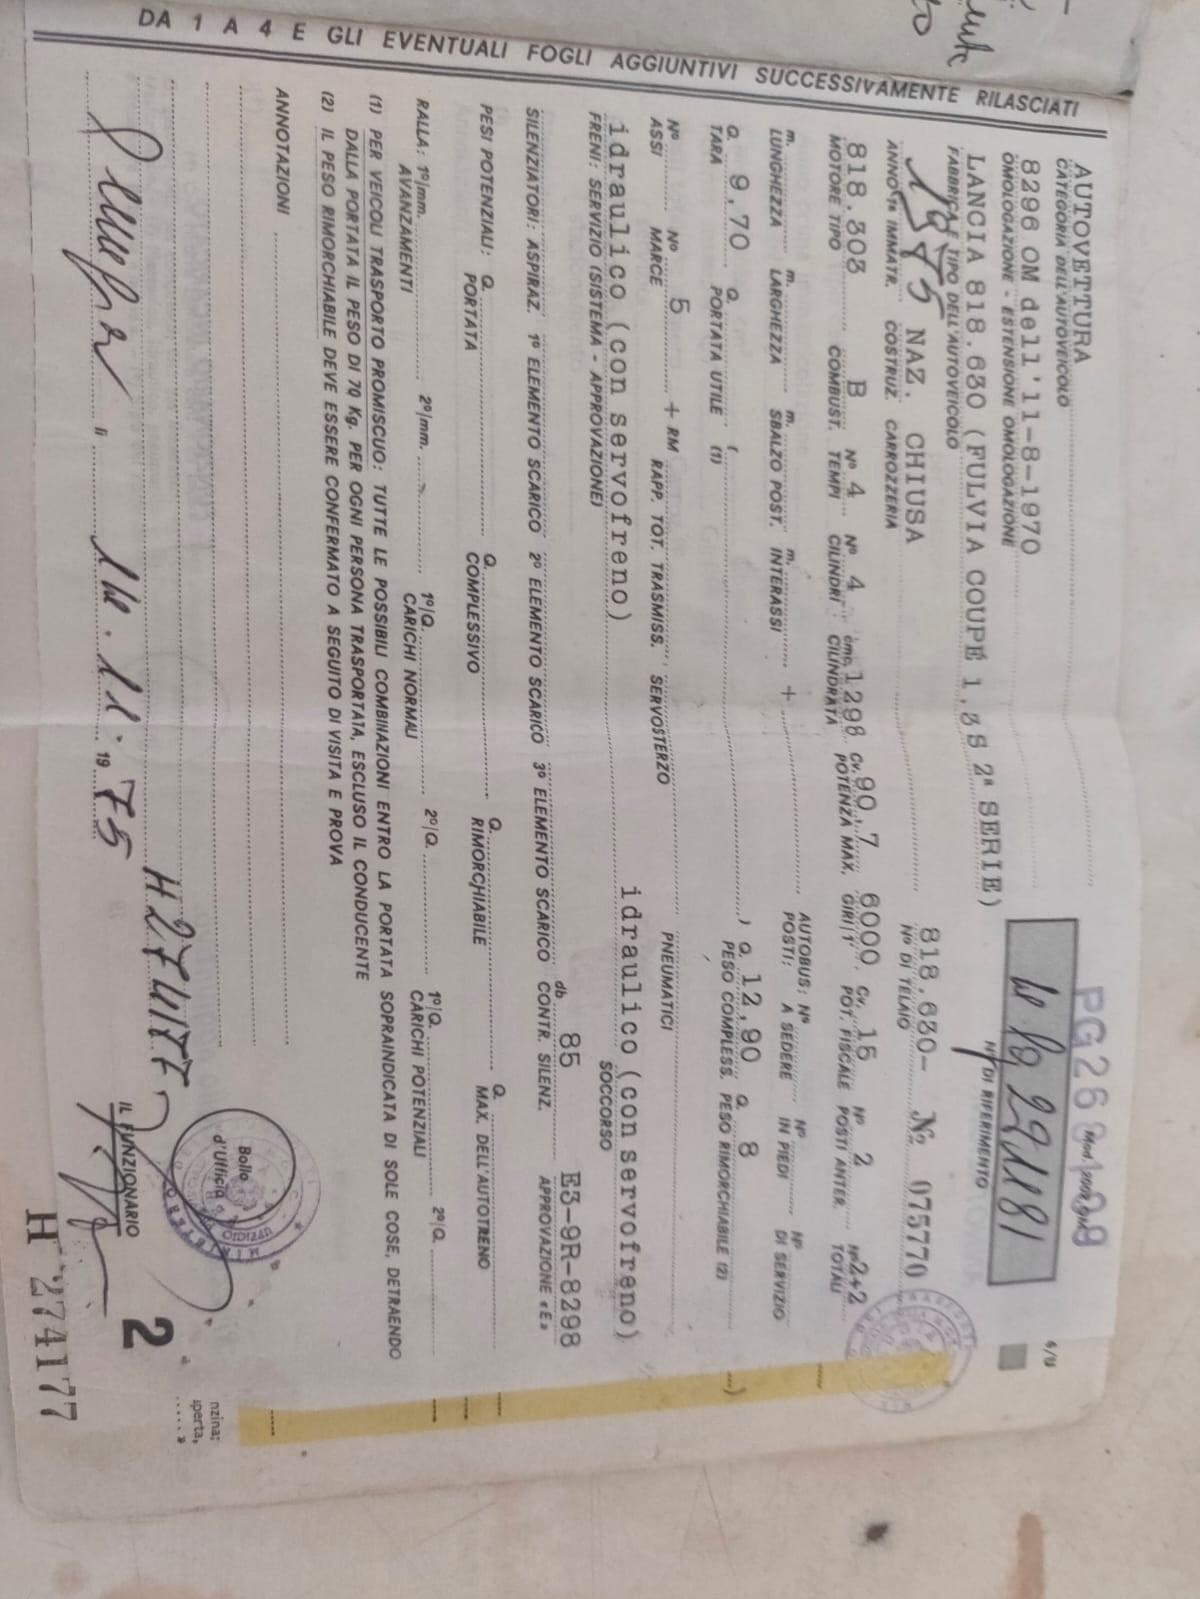 DA 1 A 4 E GLI EVENTUALI FOGLI AGGIUNTIVI SUCCESSIVAMENTE RILASCIATI
4/U
Mod.
AUTOVETTURA
CATEGORIA DELL'AUTOVEICOLO
8296 OM dell'11-8-1970
OMOLOGAZIONE - ESTENSIONE OMOLOGAZIONE
229181
N° DI RIFERIMENTO
LANCIA 818.630 (FULVIA COUPÉ 1,3S 2ª SERIE)
FABBRICA E TIPO DELL'AUTOVEICOLO
1975 NAZ. CHIUSA 818.630- No 075770
ANNO 1ª IMMATR. COSTRUZ. CARROZZERIA N° DI TELAIO
818.303 B N° 4 N° 4 cmc. 1298 Cv. 90,7 6000 Cv. 15 N° 2 N° 2+2
MOTORE TIPO COMBUST. TEMPI CILINDRI CILINDRATA POTENZA MAX. GIRI/1' POT. FISCALE POSTI ANTER. TOTALI
m. m. m. m. + AUTOBUS: N° N° N°
LUNGHEZZA LARGHEZZA SBALZO POST. INTERASSI POSTI: A SEDERE IN PIEDI DI SERVIZIO
Q. 9.70 Q. ( ) Q. 12,90 Q. 8
TARA PORTATA UTILE (1) PESO COMPLESS. PESO RIMORCHIABILE (2)
N° N° 5 + RM
ASSI MARCE RAPP. TOT. TRASMISS. SERVOSTERZO PNEUMATICI
idraulico (con servofreno) idraulico (con servofreno)
FRENI: SERVIZIO (SISTEMA - APPROVAZIONE) SOCCORSO
db 85 E3-9R-8298
SILENZIATORI: ASPIRAZ. 1° ELEMENTO SCARICO 2° ELEMENTO SCARICO 3° ELEMENTO SCARICO CONTR. SILENZ. APPROVAZIONE «E»
PESI POTENZIALI: Q. Q. Q. Q.
PORTATA COMPLESSIVO RIMORCHIABILE MAX. DELL'AUTOTRENO
RALLA: 1°/mm. 2°/mm. 1°/Q. 2°/Q. 1°/Q. 2°/Q.
AVANZAMENTI CARICHI NORMALI CARICHI POTENZIALI
(1) PER VEICOLI TRASPORTO PROMISCUO: TUTTE LE POSSIBILI COMBINAZIONI ENTRO LA PORTATA SOPRAINDICATA DI SOLE COSE, DETRAENDO
DALLA PORTATA IL PESO DI 70 Kg. PER OGNI PERSONA TRASPORTATA, ESCLUSO IL CONDUCENTE
(2) IL PESO RIMORCHIABILE DEVE ESSERE CONFERMATO A SEGUITO DI VISITA E PROVA
ANNOTAZIONI
nzina;
perta,
Bollo
d'Ufficio
H 274177
li 1975
IL FUNZIONARIO
2
H 274177